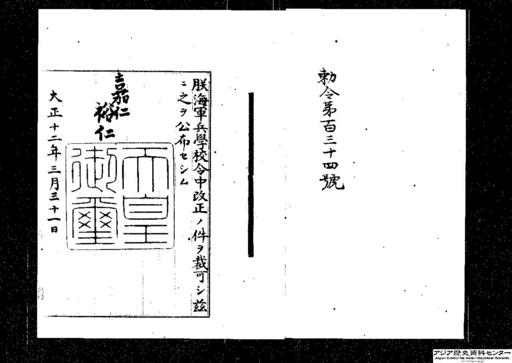 勅令第百三十四號
朕海軍兵學校令中改正ノ件ヲ裁可シ茲
ニ之ヲ公布セシム
嘉仁
裕仁
天皇
御璽
大正十二年三月三十一日
アジア歴史資料センター
Japan Center for Asian Historical Records